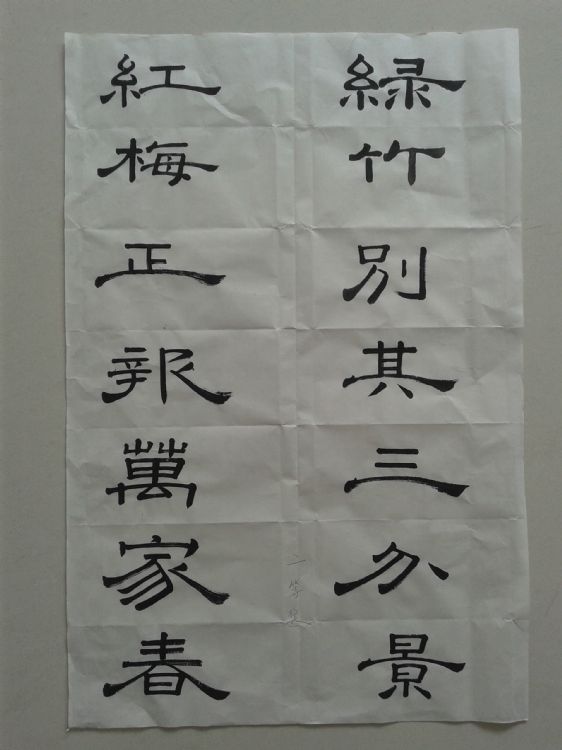 緑竹別其三分景
紅梅正報萬家春
等奖